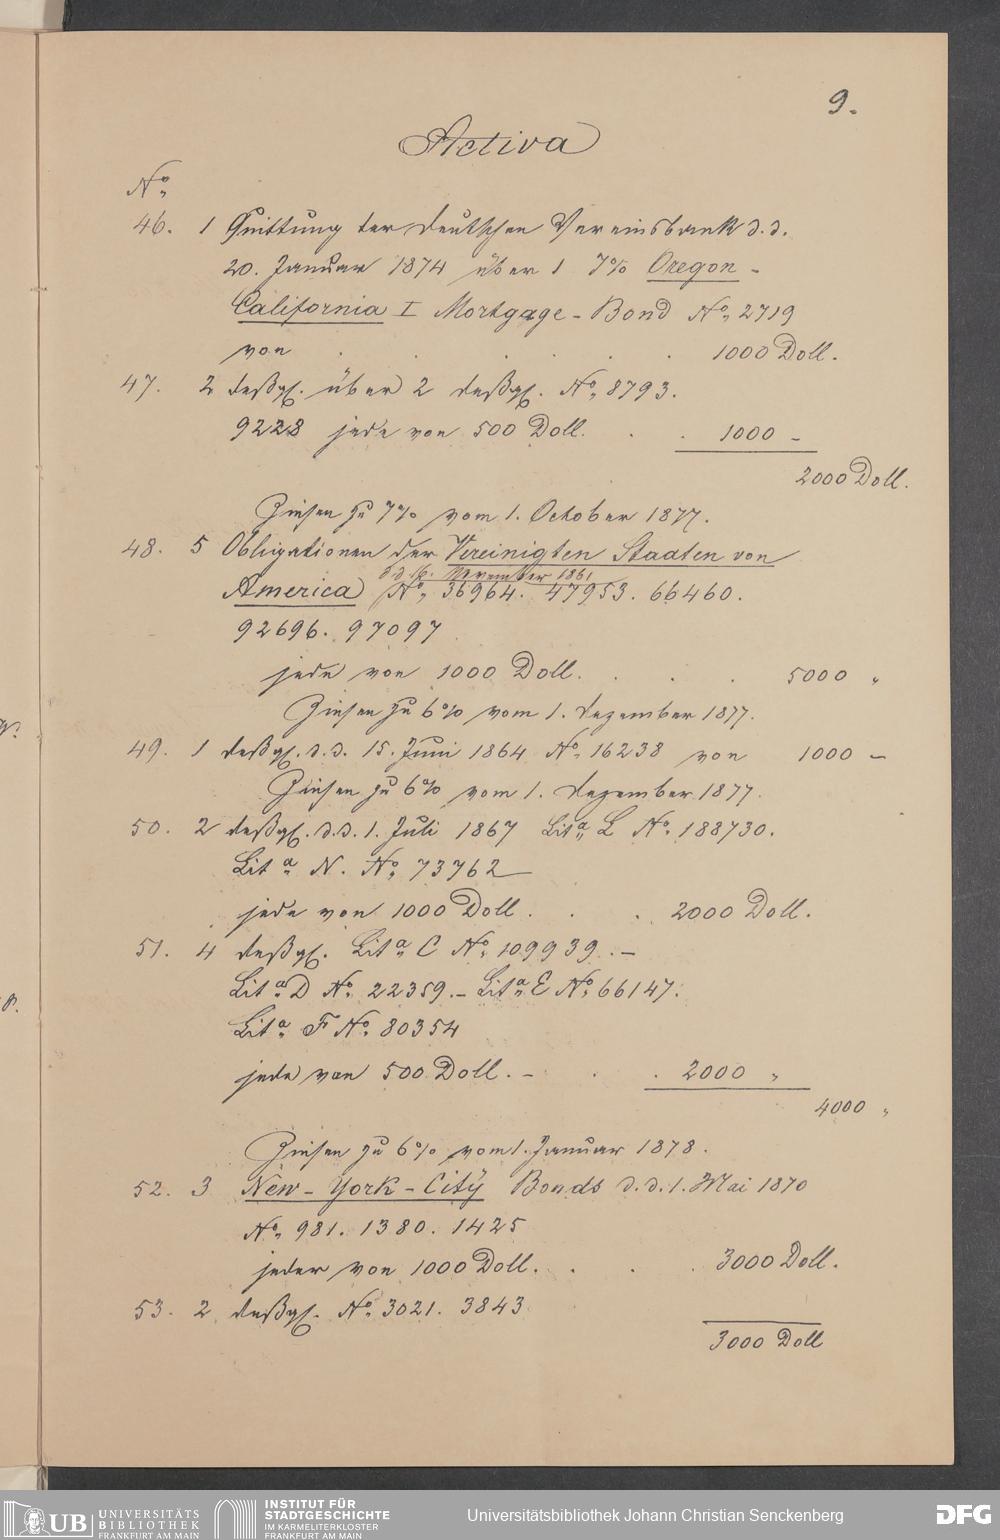 9.
Activa
No.
46. 1 Quittung der Deutschen Vereinsbank d. d.
20. Januar 1874 über 1 7% Oregon -
California I Mortgage - Bond No. 2719
von . . . . . 1000 Doll.
47. 2 deßgl. über 2 deßgl. No. 8793.
9228 jede von 500 Doll. . . 1000 -
2000 Doll.
Zinsen zu 7% vom 1. October 1877.
48. 5 Obligationen der Vereinigten Staaten von
d. d. 16. November 1861
America No. 36964. 47953. 66460.
92696. 97097
jede von 1000 Doll. . . . 5000 "
Zinsen zu 6% vom 1. Dezember 1877.
49. 1 deßgl. d. d. 15. Juni 1864 No. 16238 von 1000 -
Zinsen zu 6% vom 1. Dezember 1877.
50. 2 deßgl. d. d. 1. Juli 1867 Lita. L No. 188730.
Lita. N. No. 73762
jede von 1000 Doll. . . 2000 Doll.
51. 4 deßgl. Lita. C No. 109939. -
Lita. D No. 22359. - Lita. E No. 66147.
Lita. F No. 80354
jede von 500 Doll. - . . 2000 "
4000 "
Zinsen zu 6% vom 1. Januar 1878.
52. 3 New - York - City Bonds d. d. 1. Mai 1870
No. 981. 1380. 1425
jeder von 1000 Doll. . . . 3000 Doll.
53. 2 deßgl. No. 3021. 3843
3000 Doll
UB UNIVERSITÄTS BIBLIOTHEK FRANKFURT AM MAIN
INSTITUT FÜR STADTGESCHICHTE IM KARMELITERKLOSTER FRANKFURT AM MAIN
Universitätsbibliothek Johann Christian Senckenberg
DFG